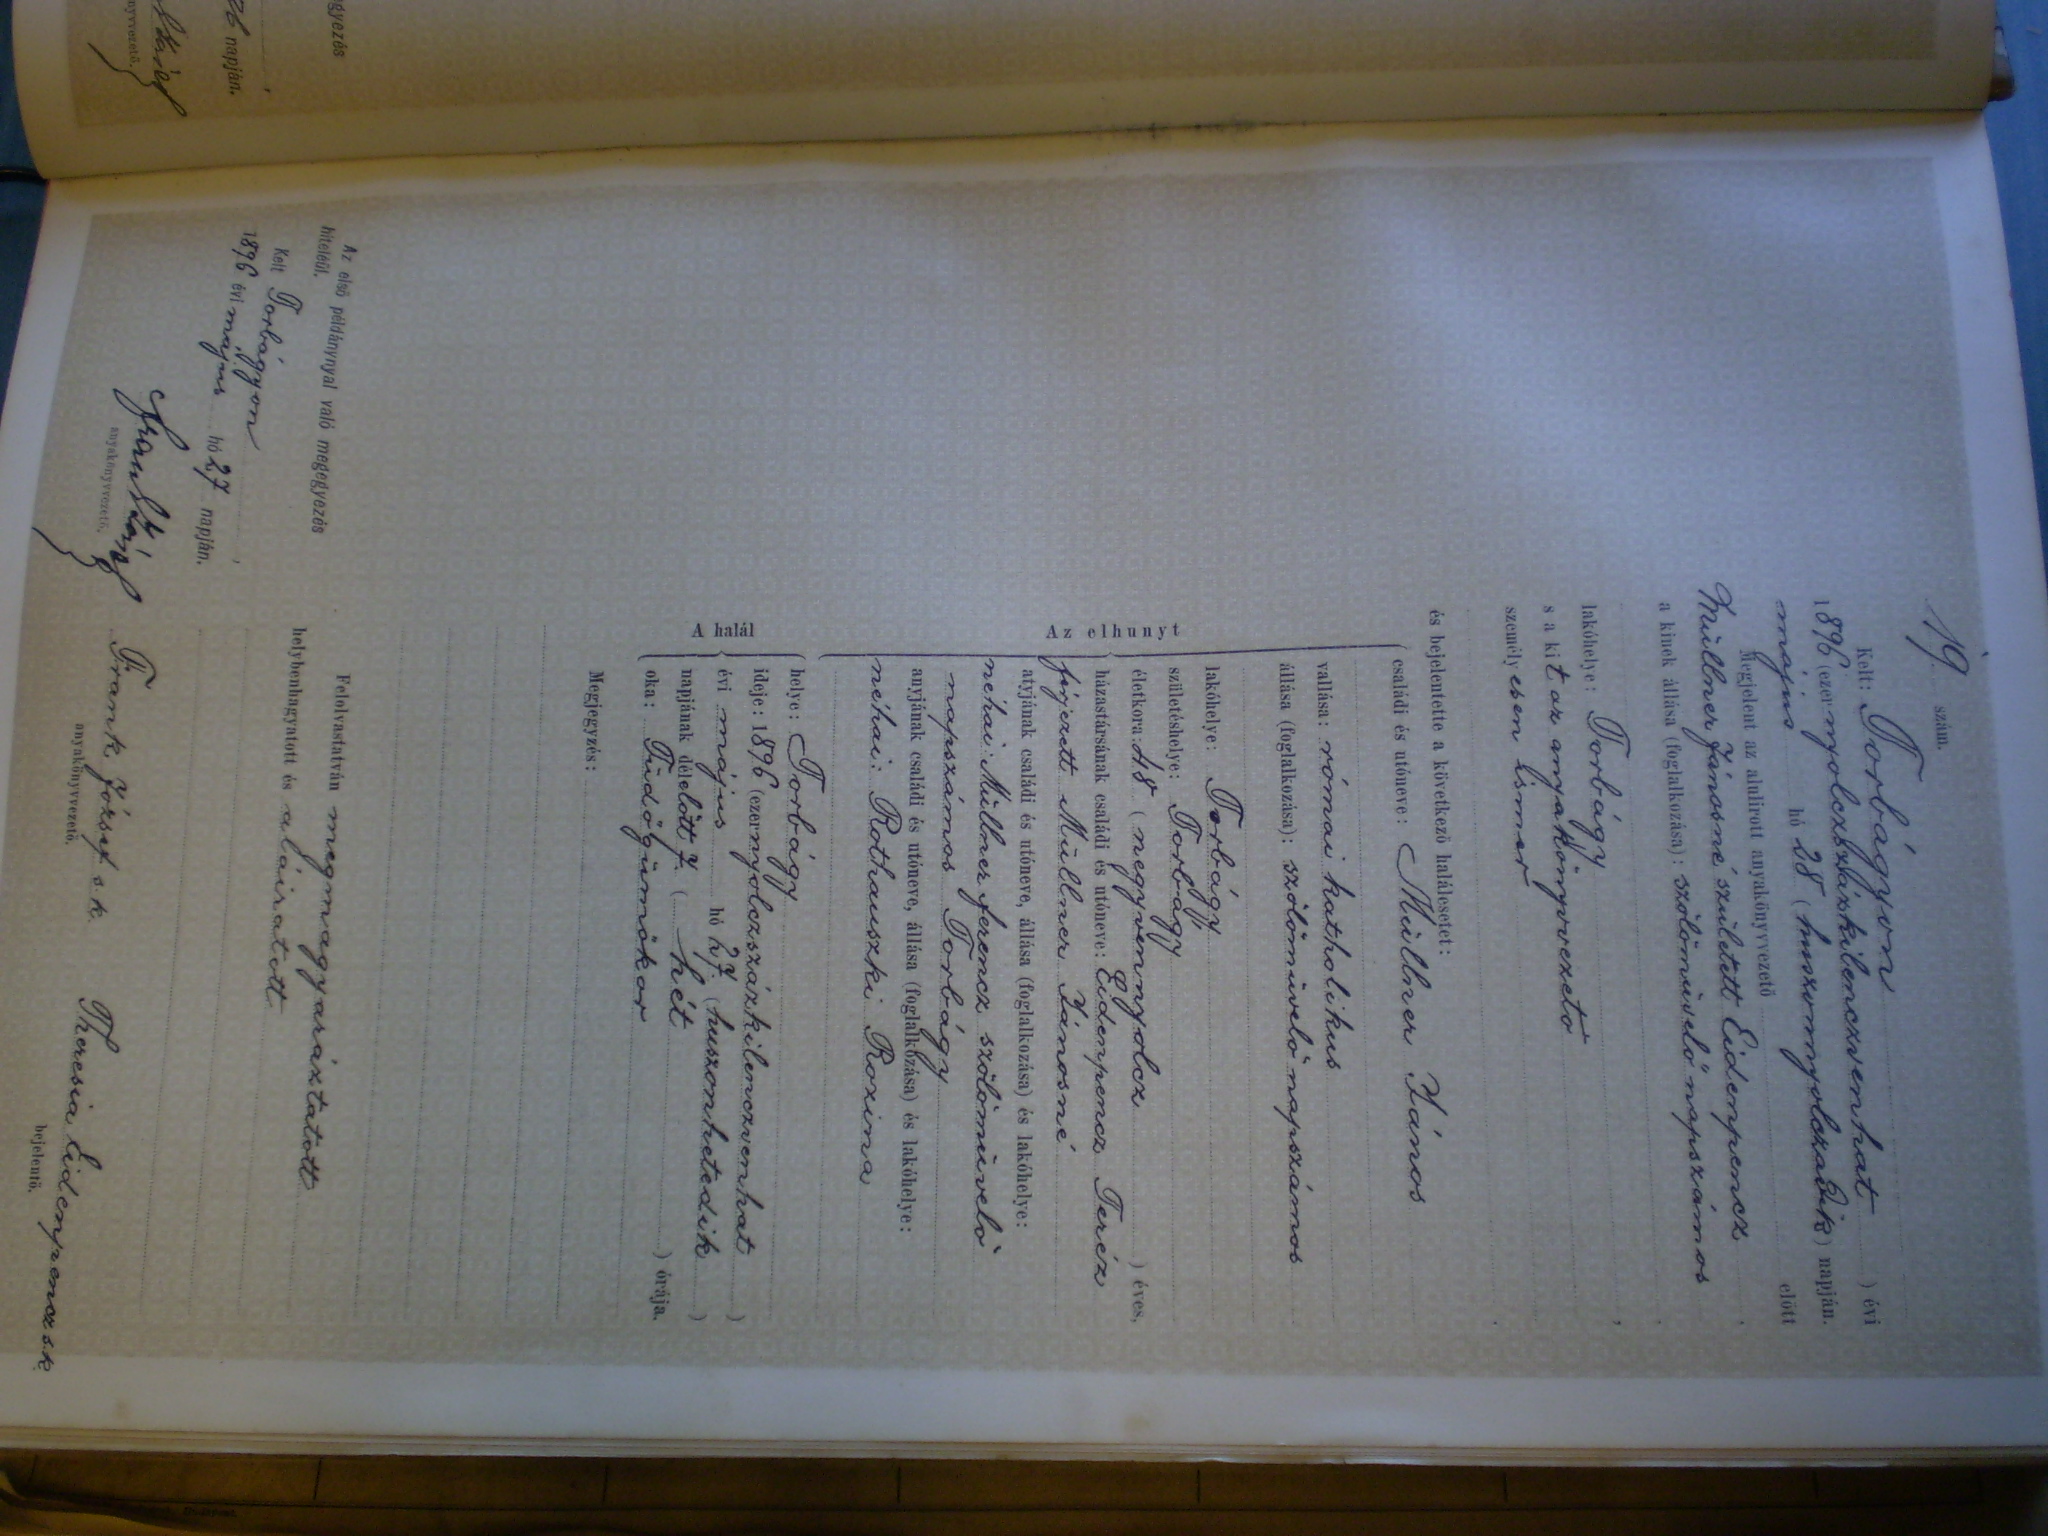 gyezés
napján.
nyvvezető.
19. szám.
Kelt: Torbágyon
1896 (ezernyolczszázkilenczvenhat) évi
május hó 28 (huszonnyolczadik) napján.
Megjelent az alulirott anyakönyvvezető előtt
Müllner Jánosné született Eidenpencz,
a kinek állása (foglalkozása): szőlőművelő napszámos,
lakóhelye: Torbágy,
s a kit az anyakönyvvezető
személyesen ismer,
és bejelentette a következő halálesetet:
Az elhunyt
családi és utóneve: Müllner János
vallása: római katholikus
állása (foglalkozása): szőlőművelő napszámos
lakóhelye: Torbágy
születéshelye: Torbágy
életkora: 48 (negyvennyolcz) éves,
házastársának családi és utóneve: Eidenpencz Teréz
férjezett Müllner Jánosné
atyjának családi és utóneve, állása (foglalkozása) és lakóhelye:
néhai: Müllner ferencz szőlőművelő
napszámos Torbágy
anyjának családi és utóneve, állása (foglalkozása) és lakóhelye:
néhai: Rothauszki Rozina
A halál
helye: Torbágy
ideje: 1896 (ezernyolczszázkilenczvenhat)
évi május hó 27. (huszonhetedik)
napjának délelőtt 7. (hét) órája.
oka: Tüdőgümőkor
Megjegyzés:
Felolvastatván megmagyaráztatott
helybenhagyatott és aláiratott.
Frank József s.k.
anyakönyvvezető.
Theresia Eidenpencz s.k.
bejelentő.
Az első példánynyal való megegyezés
hiteléül.
Kelt Torbágyon,
1896 évi május hó 27 napján.
anyakönyvvezető.